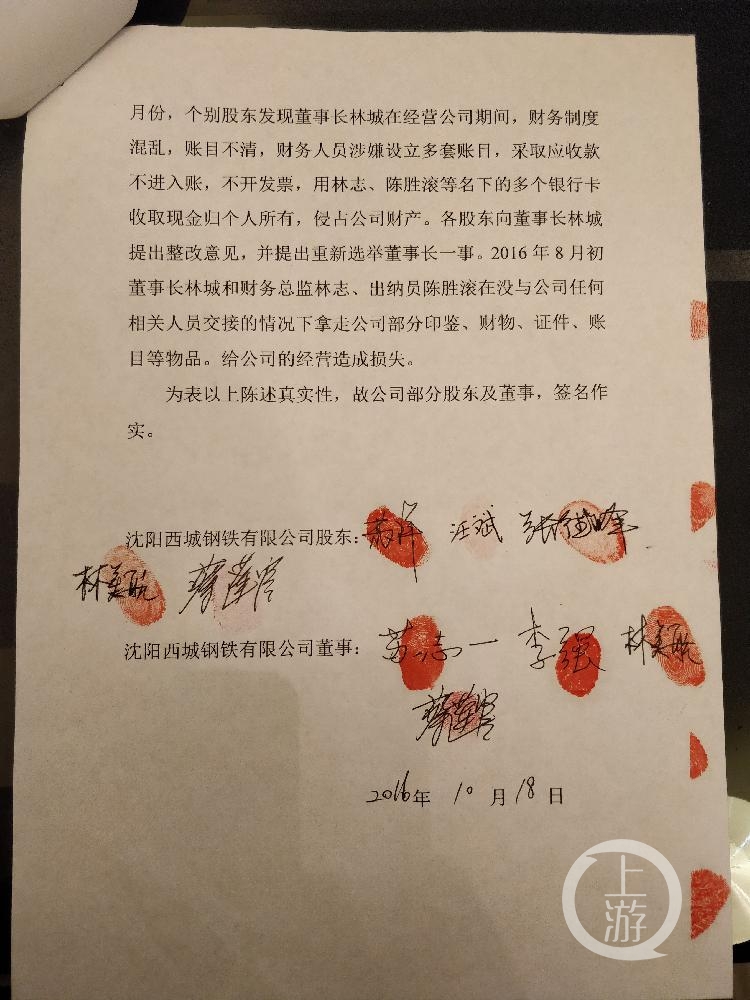 月份，个别股东发现董事长林城在经营公司期间，财务制度
混乱，账目不清，财务人员涉嫌设立多套账目，采取应收款
不进入账，不开发票，用林志、陈胜滚等名下的多个银行卡
收取现金归个人所有，侵占公司财产。各股东向董事长林城
提出整改意见，并提出重新选举董事长一事。2016年8月初
董事长林城和财务总监林志、出纳员陈胜滚在没与公司任何
相关人员交接的情况下拿走公司部分印鉴、财物、证件、账
目等物品。给公司的经营造成损失。
为表以上陈述真实性，故公司部分股东及董事，签名作
实。
沈阳西城钢铁有限公司股东： 汪斌
林美航
沈阳西城钢铁有限公司董事： 李强 林美航
2016年 10 月 18 日
上游